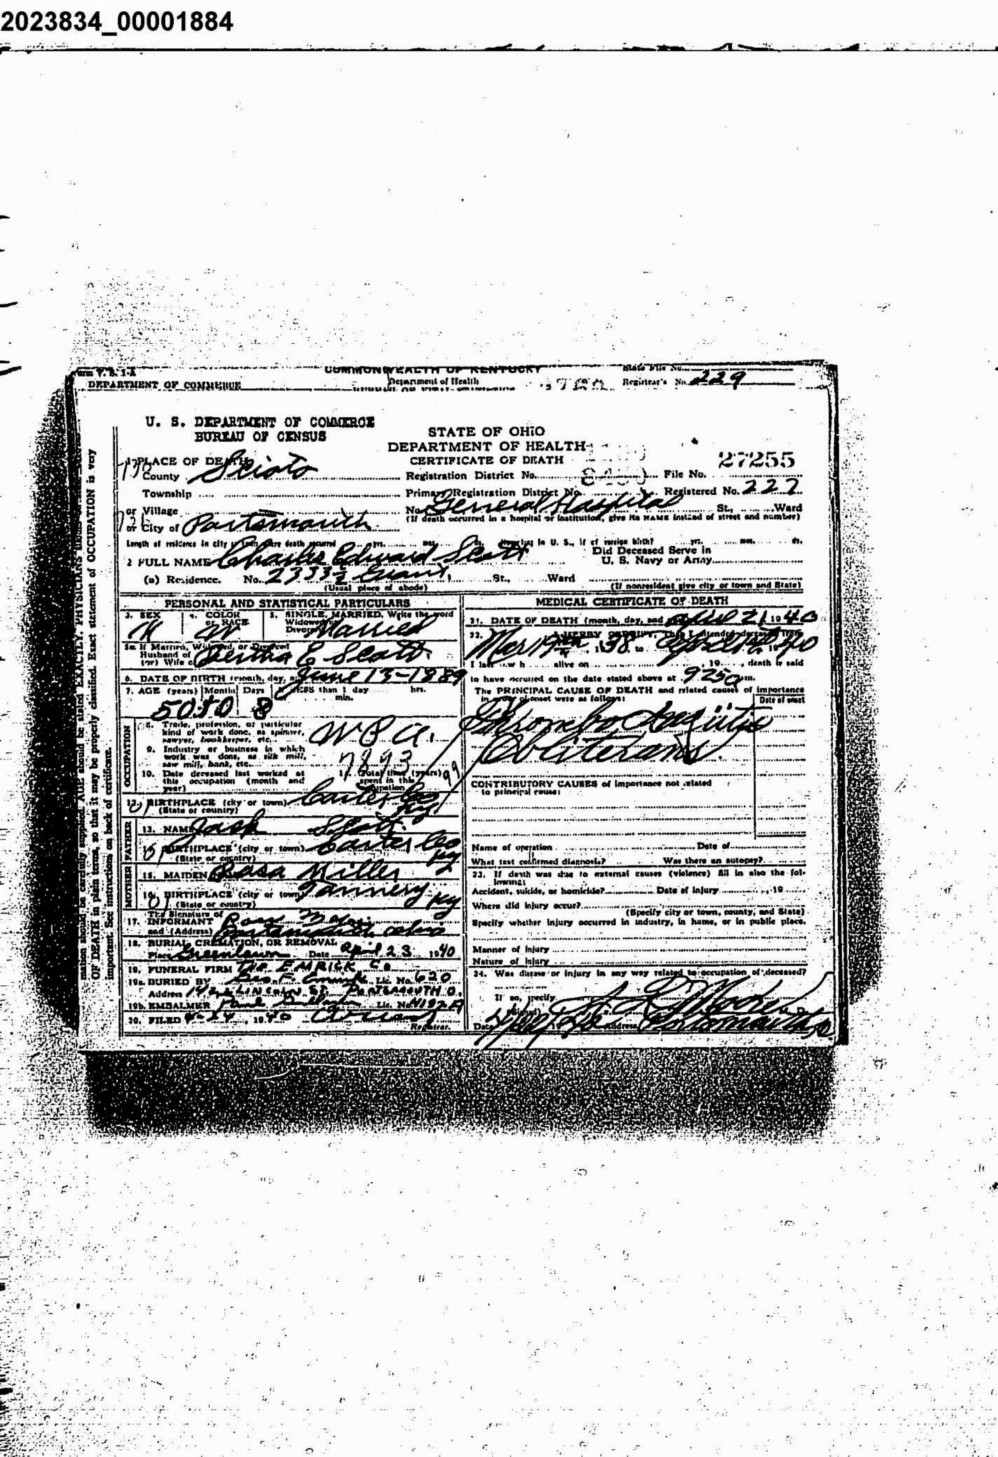 2023834_00001884
COMMONWEALTH OF KENTUCKY
DEPARTMENT OF COMMERCE
Department of Health
Registrar's No. 229
U. S. DEPARTMENT OF COMMERCE
BUREAU OF CENSUS
STATE OF OHIO
DEPARTMENT OF HEALTH
CERTIFICATE OF DEATH
27255
1 PLACE OF DEATH
County Scioto
Registration District No. File No.
Township
Primary Registration District No. Registered No. 227
or Village
No. General Hospital St., Ward
or City of Portsmouth
(If death occurred in a hospital or institution, give its NAME instead of street and number)
Length of residence in city or town where death occurred yrs. mos. ds. How long in U. S., if of foreign birth? yrs. mos. ds.
2 FULL NAME Charles Edward Scott
Did Deceased Serve in
U. S. Navy or Army
(a) Residence. No. 2333½ Grant St., Ward
(Usual place of abode)
(If nonresident give city or town and State)
PERSONAL AND STATISTICAL PARTICULARS
3. SEX M
4. COLOR or RACE W
5. SINGLE, MARRIED, Write the word
Widowed or
Divorced Married
5a. If Married, Widowed, or Divorced
Husband of
(or) Wife of Bertha E Scott
6. DATE OF BIRTH (month, day, June 13-1889
7. AGE (years) Months Days If LESS than 1 day hrs. min.
50 10 8
OCCUPATION
8. Trade, profession, or particular
kind of work done, as spinner,
sawyer, bookkeeper, etc. W P A.
9. Industry or business in which
work was done, as silk mill,
saw mill, bank, etc. 7893
10. Date deceased last worked at
this occupation (month and
year)
11. Total time (years)
spent in this
occupation
12. BIRTHPLACE (city or town) Carter Co Ky
(State or country)
FATHER
13. NAME Jack Scott
14. BIRTHPLACE (city or town) Carter Co Ky
(State or country)
MOTHER
15. MAIDEN Miller
16. BIRTHPLACE (city or town) Tannery Ky
(State or country)
17. The Signature of
INFORMANT
and (Address) Portsmouth Ohio
18. BURIAL, CREMATION, OR REMOVAL
Place Greenlawn Date April 23 1940
19. FUNERAL FIRM The EMRICK Co
19a. BURIED BY Lic. No. 620
Address 1422 LINCOLN ST. PORTSMOUTH O.
19b. EMBALMER Lic. No.
20. FILED 4-24, 1940
Registrar.
MEDICAL CERTIFICATE OF DEATH
21. DATE OF DEATH (month, day, and year) April 21 1940
22. I HEREBY CERTIFY, That I attended deceased from
Mar 19, 1938 to April 1940
I last saw h alive on , 19 , death is said
to have occurred on the date stated above at 9 25 a m.
The PRINCIPAL CAUSE OF DEATH and related causes of importance
in order of onset were as follows:
Date of onset
Thrombo Angiitis
Obliterans
CONTRIBUTORY CAUSES of importance not related
to principal cause:
Name of operation Date of
What test confirmed diagnosis? Was there an autopsy?
23. If death was due to external causes (violence) fill in also the following:
Accident, suicide, or homicide? Date of injury , 19
Where did injury occur?
(Specify city or town, county, and State)
Specify whether injury occurred in industry, in home, or in public place.
Manner of Injury
Nature of Injury
24. Was disease or injury in any way related to occupation of deceased?
If so, specify
Date Address Portsmouth O
OF DEATH in plain terms, so that it may be properly classified. Exact statement of OCCUPATION is very
important. See instruction on back of certificate.